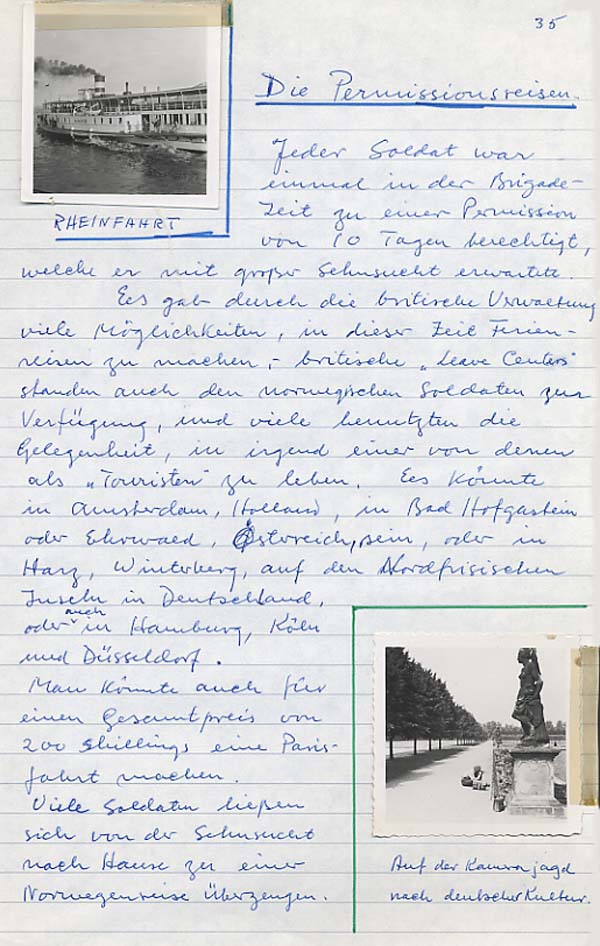 35
Die Permissionsreisen.
RHEINFAHRT
Jeder Soldat war
einmal in der Brigade-
Zeit zu einer Permission
von 10 Tagen berechtigt,
welche er mit großer Sehnsucht erwartete.
Ees gab durch die britische Verwaltung
viele Möglichkeiten, in dieser Zeit Ferien-
reisen zu machen,- britische „Leave Centers"
standen auch den norwegischen Soldaten zur
Verfügung, und viele benutzten die
Gelegenheit, in irgend einer von denen
als „Touristen" zu leben. Ees könnte
in Amsterdam, Holland, in Bad Hofgastein
oder Ehrwald, Österreich, sein, oder in
Harz, Winterberg, auf den Nordfrisischen
Inseln in Deutschland,
oder auch in Hamburg, Köln
und Düsseldorf.
Man könnte auch für
einen Gesamtpreis von
200 shillings eine Paris-
fahrt machen.
Viele Soldaten ließen
sich von der Sehnsucht
nach Hause zu einer
Norwegenreise überzeugen.
Auf der Kamerajagd
nach deutscher Kultur.